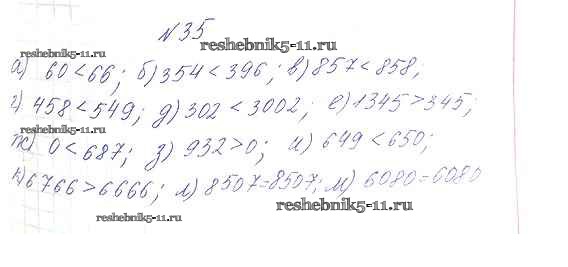 №35
reshebnik5-11.ru
reshebnik5-11.ru
а) 60<66; б) 354<396; в) 857<858;
г) 458<549; д) 302<3002; е) 1345>345;
reshebnik5-11.ru
ж) 0<687; з) 932>0; и) 649<650;
к) 6766>6666; л) 8507=8507; м) 6080=6080
reshebnik5-11.ru
reshebnik5-11.ru